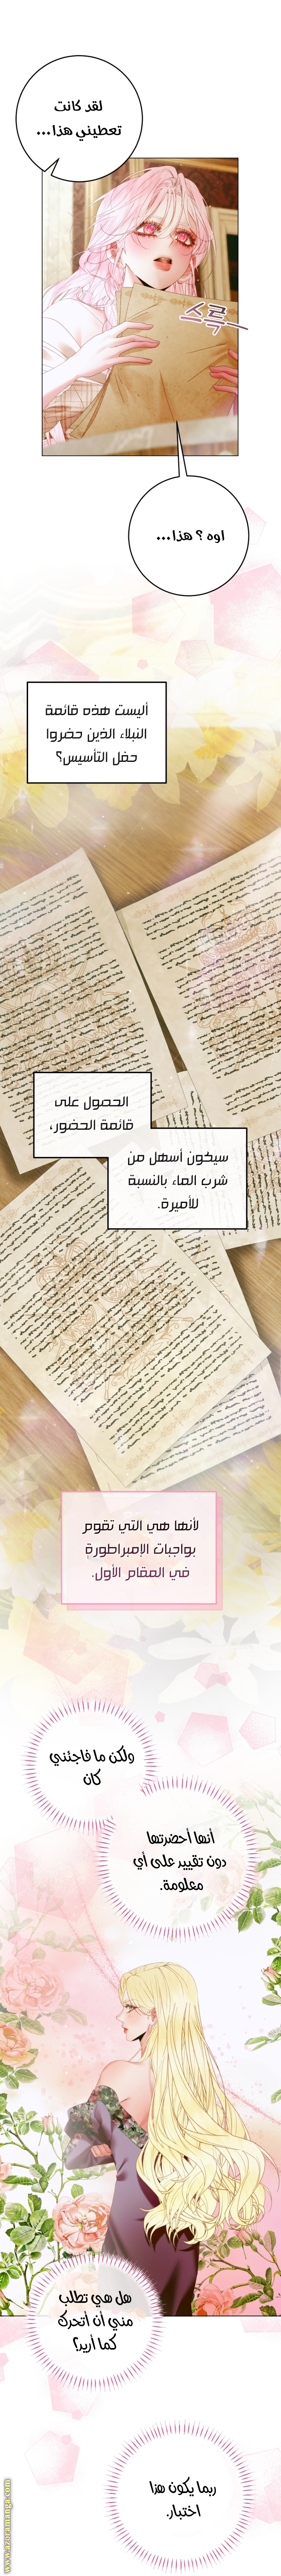 لقد كانت
تعطيني هذا...
스륵
اوه ؟ هذا...
أليست هذه قائمة
النبلاء الذين حضروا
حفل التأسيس؟
الحصول على
قائمة الحضور،
سيكون أسهل من
شرب الماء بالنسبة
للأميرة.
لأنها هي التي تقوم
بواجبات الإمبراطورة
في المقام الأول.
ولكن ما فاجئني
كان
أنها أحضرتها
دون تقييد على أي
معلومة.
هل هي تطلب
مني أن أتحرك
كما أريد؟
ربما يكون هذا
اختبار.
www.azoramanga.com